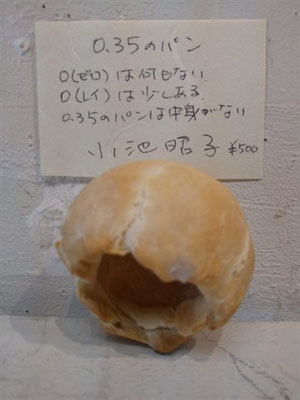 0.35のパン
0(ゼロ)は何もない.
0(レイ)は少しある.
0.35のパンは中身がない
小池昭子 ¥500